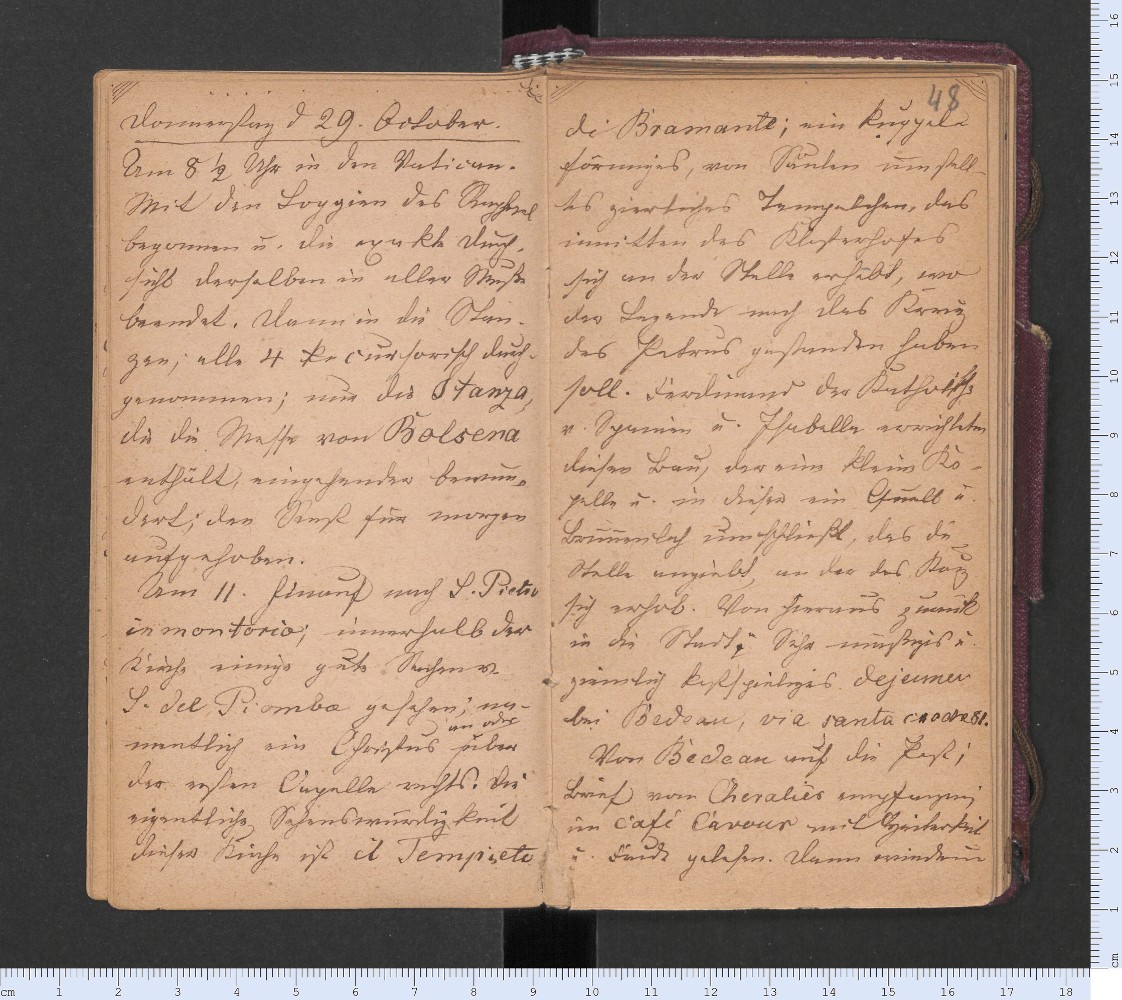 Donnerstag d 29. October.
Um 8 ½ Uhr in den Vatican.
Mit den Loggien des Raphael
begonnen u. die exakte Durch-
sicht derselben in aller Muße
beendet. Dann in die Stan-
zen; alle 4 cursorisch durch-
genommen; nur die Stanza,
die die Messe von Bolsena
enthält, eingehender bewun-
dert; den Rest für morgen
aufgehoben.
Um 11. hinauf nach S. Pietro
in montorio; innerhalb der
Kirche einige gute Sachen v.
S. del Piombo gesehen; na-
mentlich ein Christus an oder über
der ersten Capelle rechts. Die
eigentliche Sehenswürdigkeit
dieser Kirche ist il Tempieto
48
di Bramante; ein kuppel-
förmiges, von Säulen umstell-
tes zierliches Tempelchen, das
inmitten des Klosterhofes
sich an der Stelle erhebt, wo
der Legende nach das Kreuz
des Petrus gestanden haben
soll. Ferdinand der Katholische
v. Spanien u. Isabella errichteten
diesen Bau, der eine kleine Ka-
pelle u. in dieser ein Quell u.
Brunnenloch umschließt, das die
Stelle angiebt, an der das Kreuz
sich erhob. Von hieraus zurück
in die Stadt; Sehr mäßiges u.
ziemlich kostspieliges dejeuner
bei Bedeau, via santa croce 81.
Von Bedeau auf die Post;
Brief von Chevalier empfangen;
im Café Cavour mit Heiterkeit
u. Freude gelesen. Dann wiederum